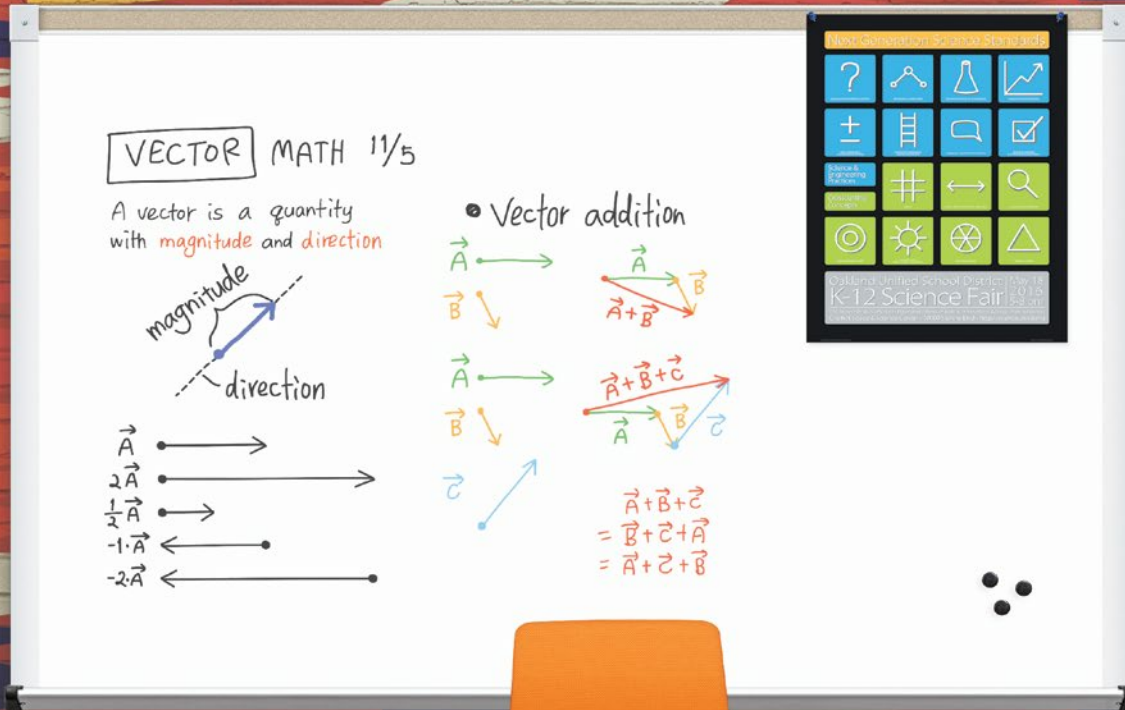 VECTOR MATH 11/5
A vector is a quantity
with magnitude and direction
magnitude
direction
A⃗
2A⃗
½A⃗
-1·A⃗
-2·A⃗
• Vector addition
A⃗
B⃗
A⃗
B⃗
A⃗+B⃗
A⃗
B⃗
C⃗
A⃗+B⃗+C⃗
A⃗
B⃗
C⃗
A⃗+B⃗+C⃗
= B⃗+C⃗+A⃗
= A⃗+C⃗+B⃗
Next Generation Science Standards
?
±
Science &
Engineering
Practices
Crosscutting
Concepts
Oakland Unified School District
K-12 Science Fair
May 18
2016